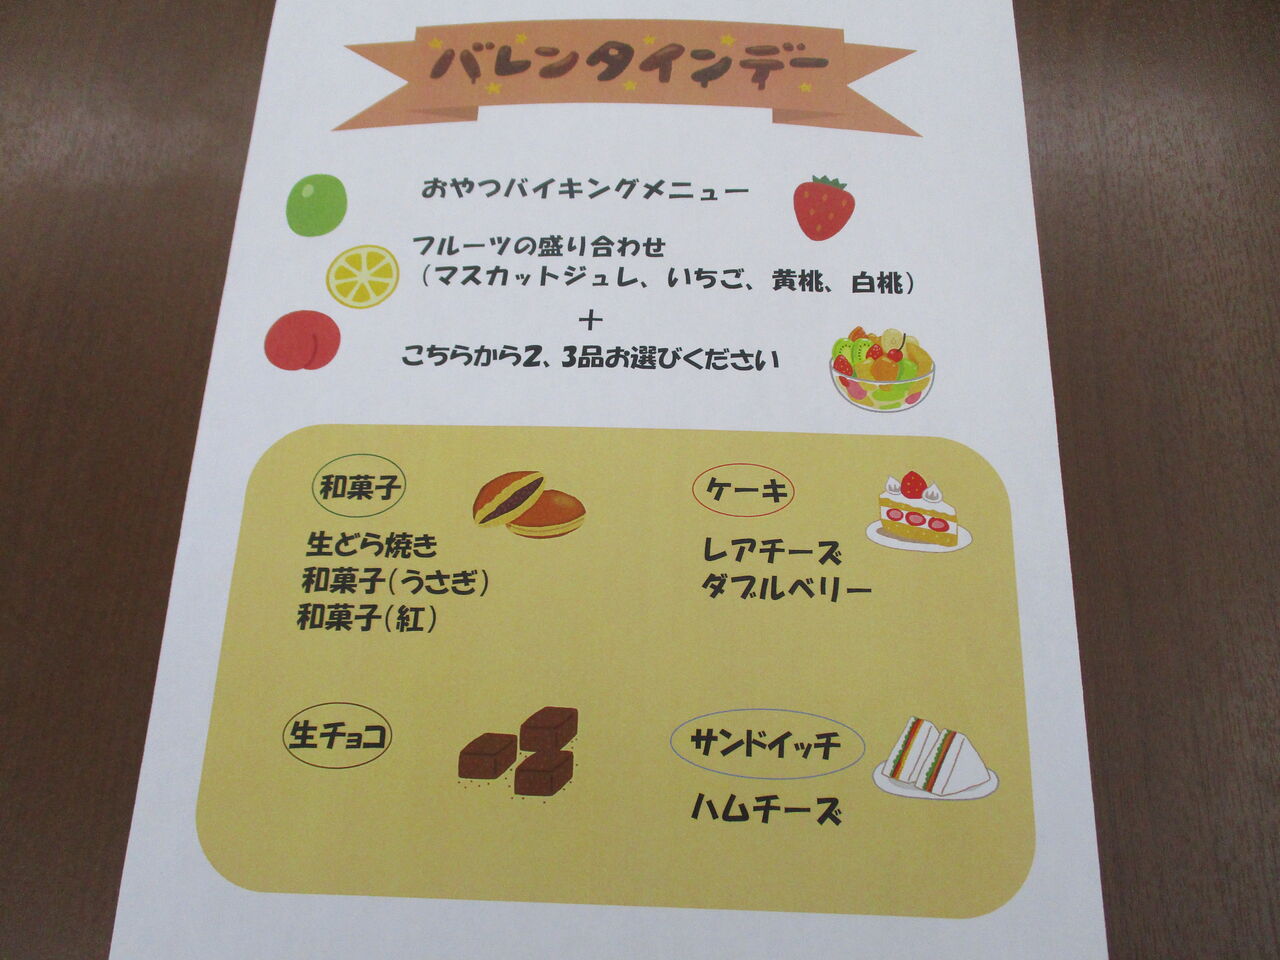 バレンタインデー
おやつバイキングメニュー
フルーツの盛り合わせ
（マスカットジュレ、いちご、黄桃、白桃）
＋
こちらから2、3品お選びください
和菓子
生どら焼き
和菓子（うさぎ）
和菓子（紅）
ケーキ
レアチーズ
ダブルベリー
生チョコ
サンドイッチ
ハムチーズ